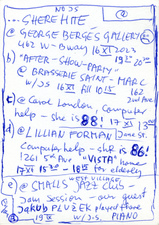 NOJS
... SHERE HITE
@ GEORGE BERGES GALLERY
462 W-Bway 16 XI 2023
19:00 20:00
b) "AFTER-SHOW-PARTY"
@ BRASSERIE SAINT-MARC
w/JS 16 XI 10 16
2nd AVE
c) @ Carol London, Computer
help - she is 88! 17 XI 13:00
d) @ LILLIAN FORMAN Jane St.
Computer help - she is 86!
! 261 5th Ave "VISTA" home
17 XI 15:30 - 18:00 for elderly
e) @ SMALLS JAZZ CLUB
WEST VILLAGE
Jam Session - our guest
Jakub PLUŻEK played there
19 XI w/J.S. PIANO